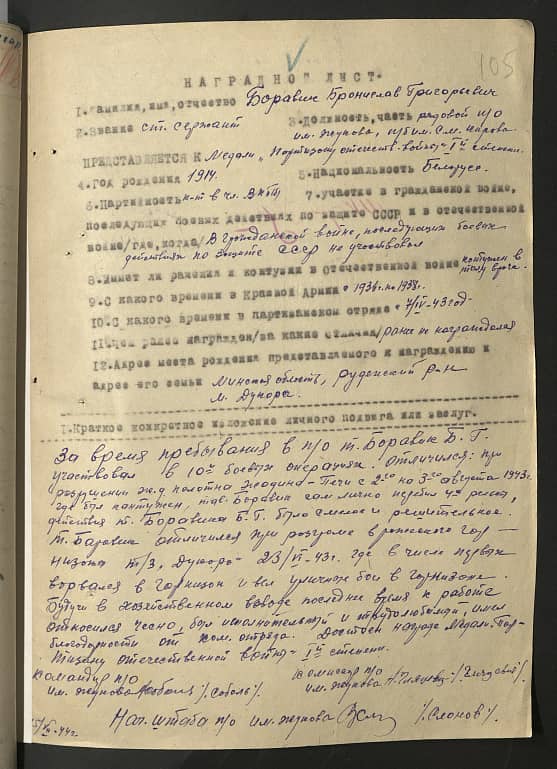 105
НАГРАДНОЙ ЛИСТ.
1. Фамилия, имя, отчество Боравик Бронислав Григорьевич
2. Звание ст. сержант
3. Должность, часть рядовой п/о
им. Жукова, п/б им. С.М. Кирова
ПРЕДСТАВЛЯЕТСЯ К Медали "Партизану отечеств. войны" Iой степени.
4. Год рождения 1914.
5. Национальность Белорус.
6. Партийность к-т в чл. ВКП(б)
7. Участие в гражданской войне,
последующих боевых действиях по защите СССР и в отечественной
войне/где, когда/ В Гражданской войне, последующих боевых
действиях по защите СССР не участвовал
8. Имеет ли ранения и контузии в Отечественной войне контужен в
тылу врага.
9. С какого времени в Красной Армии с 1936г. по 1938г.
10. С какого времени в партизанском отряде с 7/IV-43 год.
11. Чем ранее награжден/за какие отличия/ ранее не награждался
12. Адрес места рождения представляемого к награждению и
адрес его семьи Минская область, Руденский р-н
м. Дукора.
I. Краткое конкретное изложение личного подвига или заслуг.
За время пребывания в п/о т. Боравик Б.Г.
участвовал в 10и боевых операциях. Отличился: при
разрушении ж.д. полотна Жодино - с 2го на 3го августа 1943г.
где был кантужен, тов. Боравик сам лично перебил 4е рельс,
действия т. Боравика Б.Г. было смелое и решительное.
Т. Боравик отличился при разгроме вражеского гар-
низона Дукора 23/VI-43г. где в числе первых
ворвался в гарнизон и вел уличные бои в гарнизоне.
Будучи в хозяйственном взводе последнее время к работе
относился чесно, был исполнительный и трудолюбивый, имел
благодарности от ком. отряда. Достоен награде Медали "Пар-
тизану отечественной войны" Iой степени.
Командир п/о
им. Жукова /Соболь/.
Комиссар п/о
им. Жукова
Нач. штаба п/о им. Жукова /Слонов/.